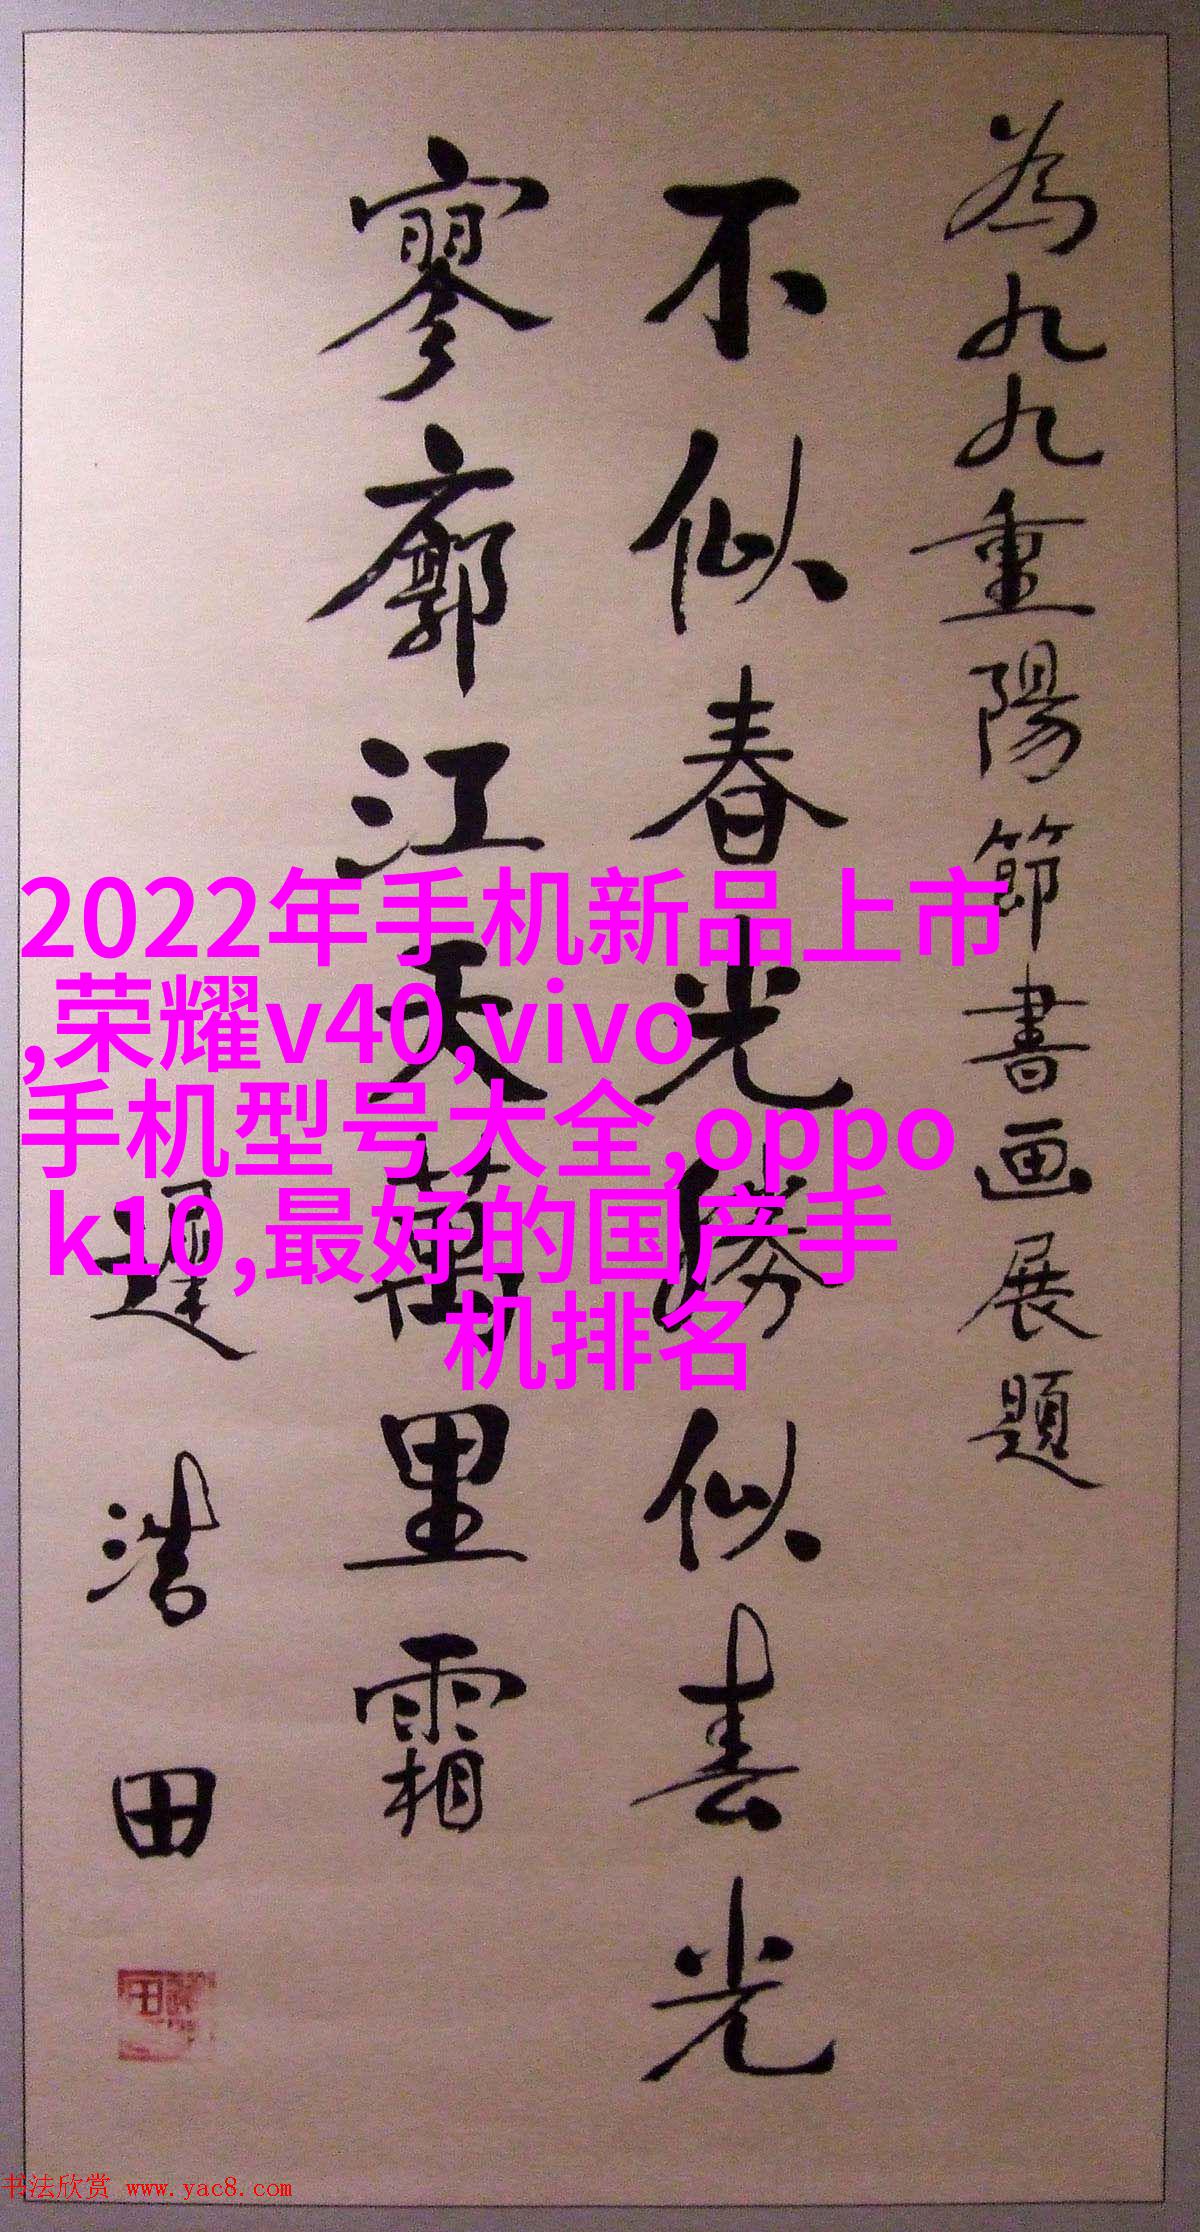 為九九重陽節書画展題
不似春光勝似春光
寥廓江天萬里霜
浩田
2022年手机新品上市
,荣耀v40,vivo
手机型号大全,oppo
k10,最好的国产手
机排名
书法欣赏 www.yac8.com